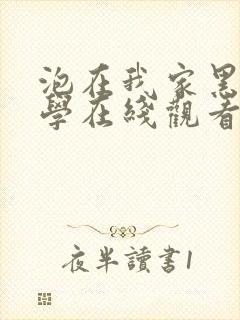 泡在我家黑
學在綫觀看
夜半讀書1